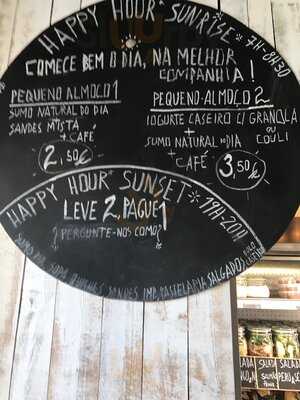 HAPPY HOUR SUNRISE * 7H-8H30
COMECE BEM O DIA, NA MELHOR
COMPANHIA!
PEQUENO ALMOÇO 1
SUMO NATURAL DO DIA
+
SANDES MISTA
+ CAFÉ
2,50€
PEQUENO-ALMOÇO 2
IOGURTE CASEIRO C/ GRANOLA
OU
COULI
+
SUMO NATURAL DO DIA
+ CAFÉ
3,50€
HAPPY HOUR SUNSET * 19H-20H
LEVE 2, PAGUE 1
? PERGUNTE-NOS COMO?
SUMO DIA SOPA QUICHES SANDES PASTELARIA SALGADOS
SALADA
SALMÃO
SALADA